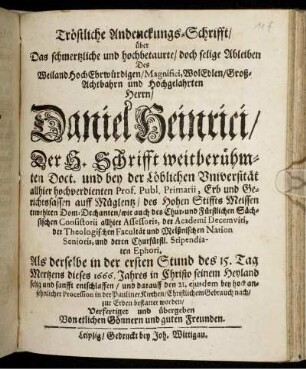 Tröstliche Andenckungs-Schrifft/
über
Das schmertzliche und hochbetaurte/ doch selige Ableiben
Des
Weiland HochEhrwürdigen/ Magnifici, WolEdlen/ Groß-
Achtbahrn und Hochgelahrten
Herrn/
Daniel Heinrici/
Der H. Schrifft weitberühm-
ten Doct. und bey der Löblichen Universität
allhier hochverdienten Prof. Publ. Primarii, Erb und Ge-
richtssassen auff Müglentz/ des Hohen Stiffts Meissen
Dom-Dechanten/ wie auch des Chur-und Fürstlichen Säch-
sischen Consistorii allhier Assessoris, der Academi Decemviri,
der Theologischen Facultät und Meißnischen Nation
Senioris, und derer Churfürstl. Stipendia-
ten Ephori,
Als derselbe in der ersten Stund des 15. Tag
Mertzens dieses 1666. Jahres in Christo seinem Heyland
selig und sanfft entschlaffen/ und darauff den 21. ejusdem bey hoch an-
sehnlicher Procession in der Pauliner Kirchen/ Christlichem Gebrauch nach/
zur Erden bestattet worden/
Verfertiget und übergeben
Von etlichen Gönnern und guten Freunden.
Leipzig/ Gedruckt bey Joh. Wittigau.